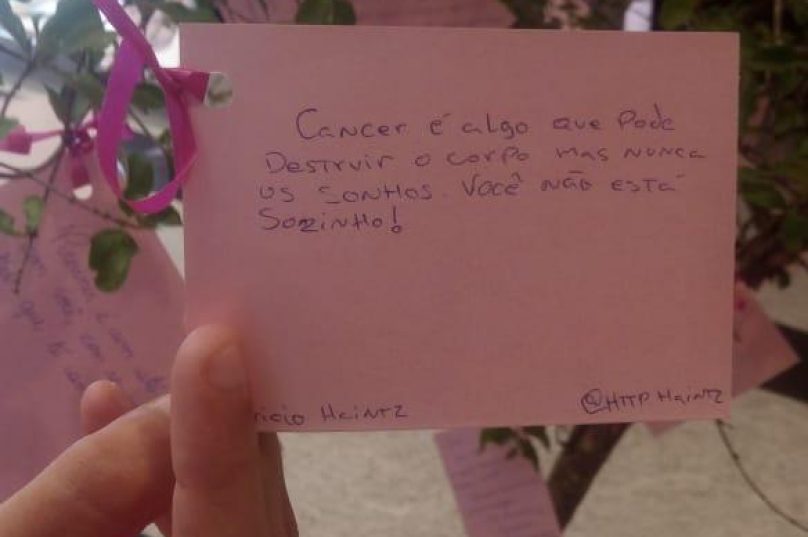 Cancer é algo que pode
Destruir o corpo mas nunca
os sonhos. Você não está
Sozinho!
Heintz
@HTTP Heintz